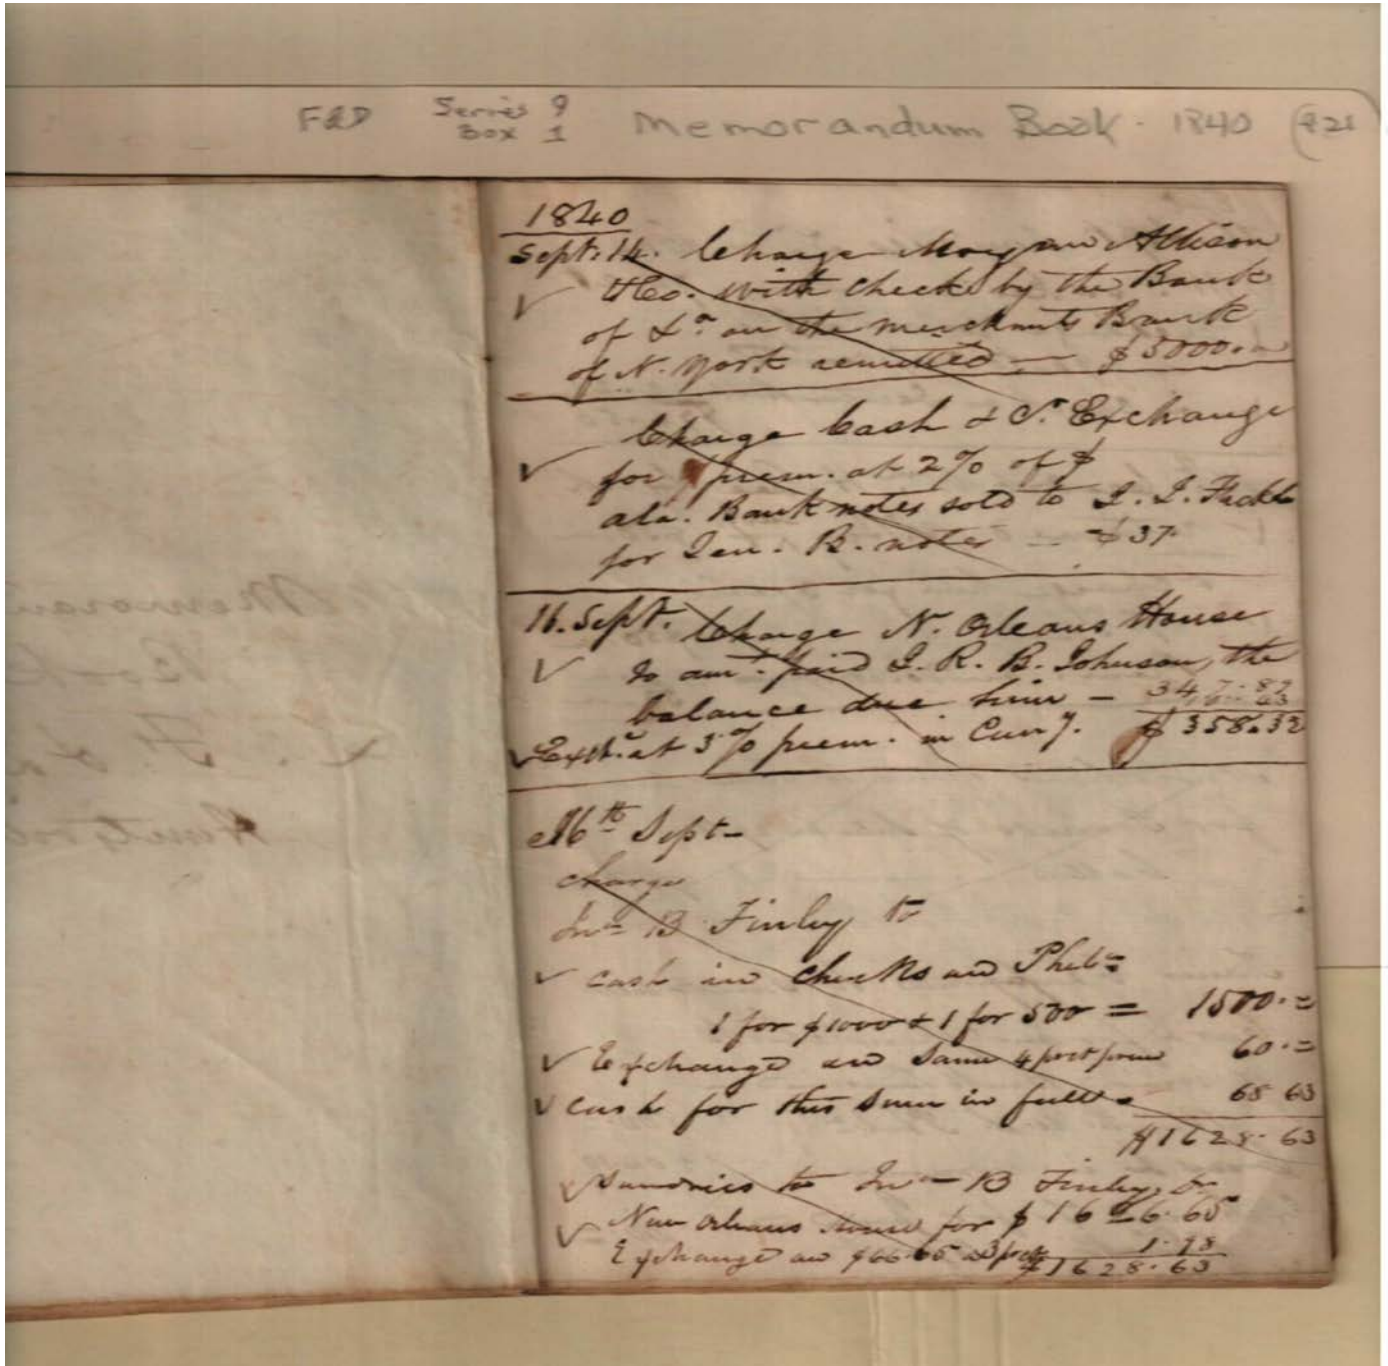 F&D Series 9 Box 1 Memorandum Book. 1840
1840
Sept. 14. Charge Morgan Allison
& Co. with check by the Bank
of La. on the Merchants Bank
of N. York remitted — $5000.
Charge Cash & Dr. Exchange
for prem. at 2% of $
ala. Bank notes sold to J. J.
for Ten. B. notes — $37.
16. Sept. Charge N. Orleans House
To amt. paid J. R. B. Johnson, the
balance due him — 347.89
Exch. at 3% prem. in Curry. $358.32
16th Sept—
charge
Jno B Finley to
cash in checks on Phila
1 for $1000 & 1 for 500 = 1500.=
Exchange on Same 4 prct prem 60.=
Cash for this Sum in full 68 63
$1628.63
Sundries to Jno B Finley Dr
New Orleans House for $1626.65
Exchange on $66.65 a 3 prct 1.98
$1628.63